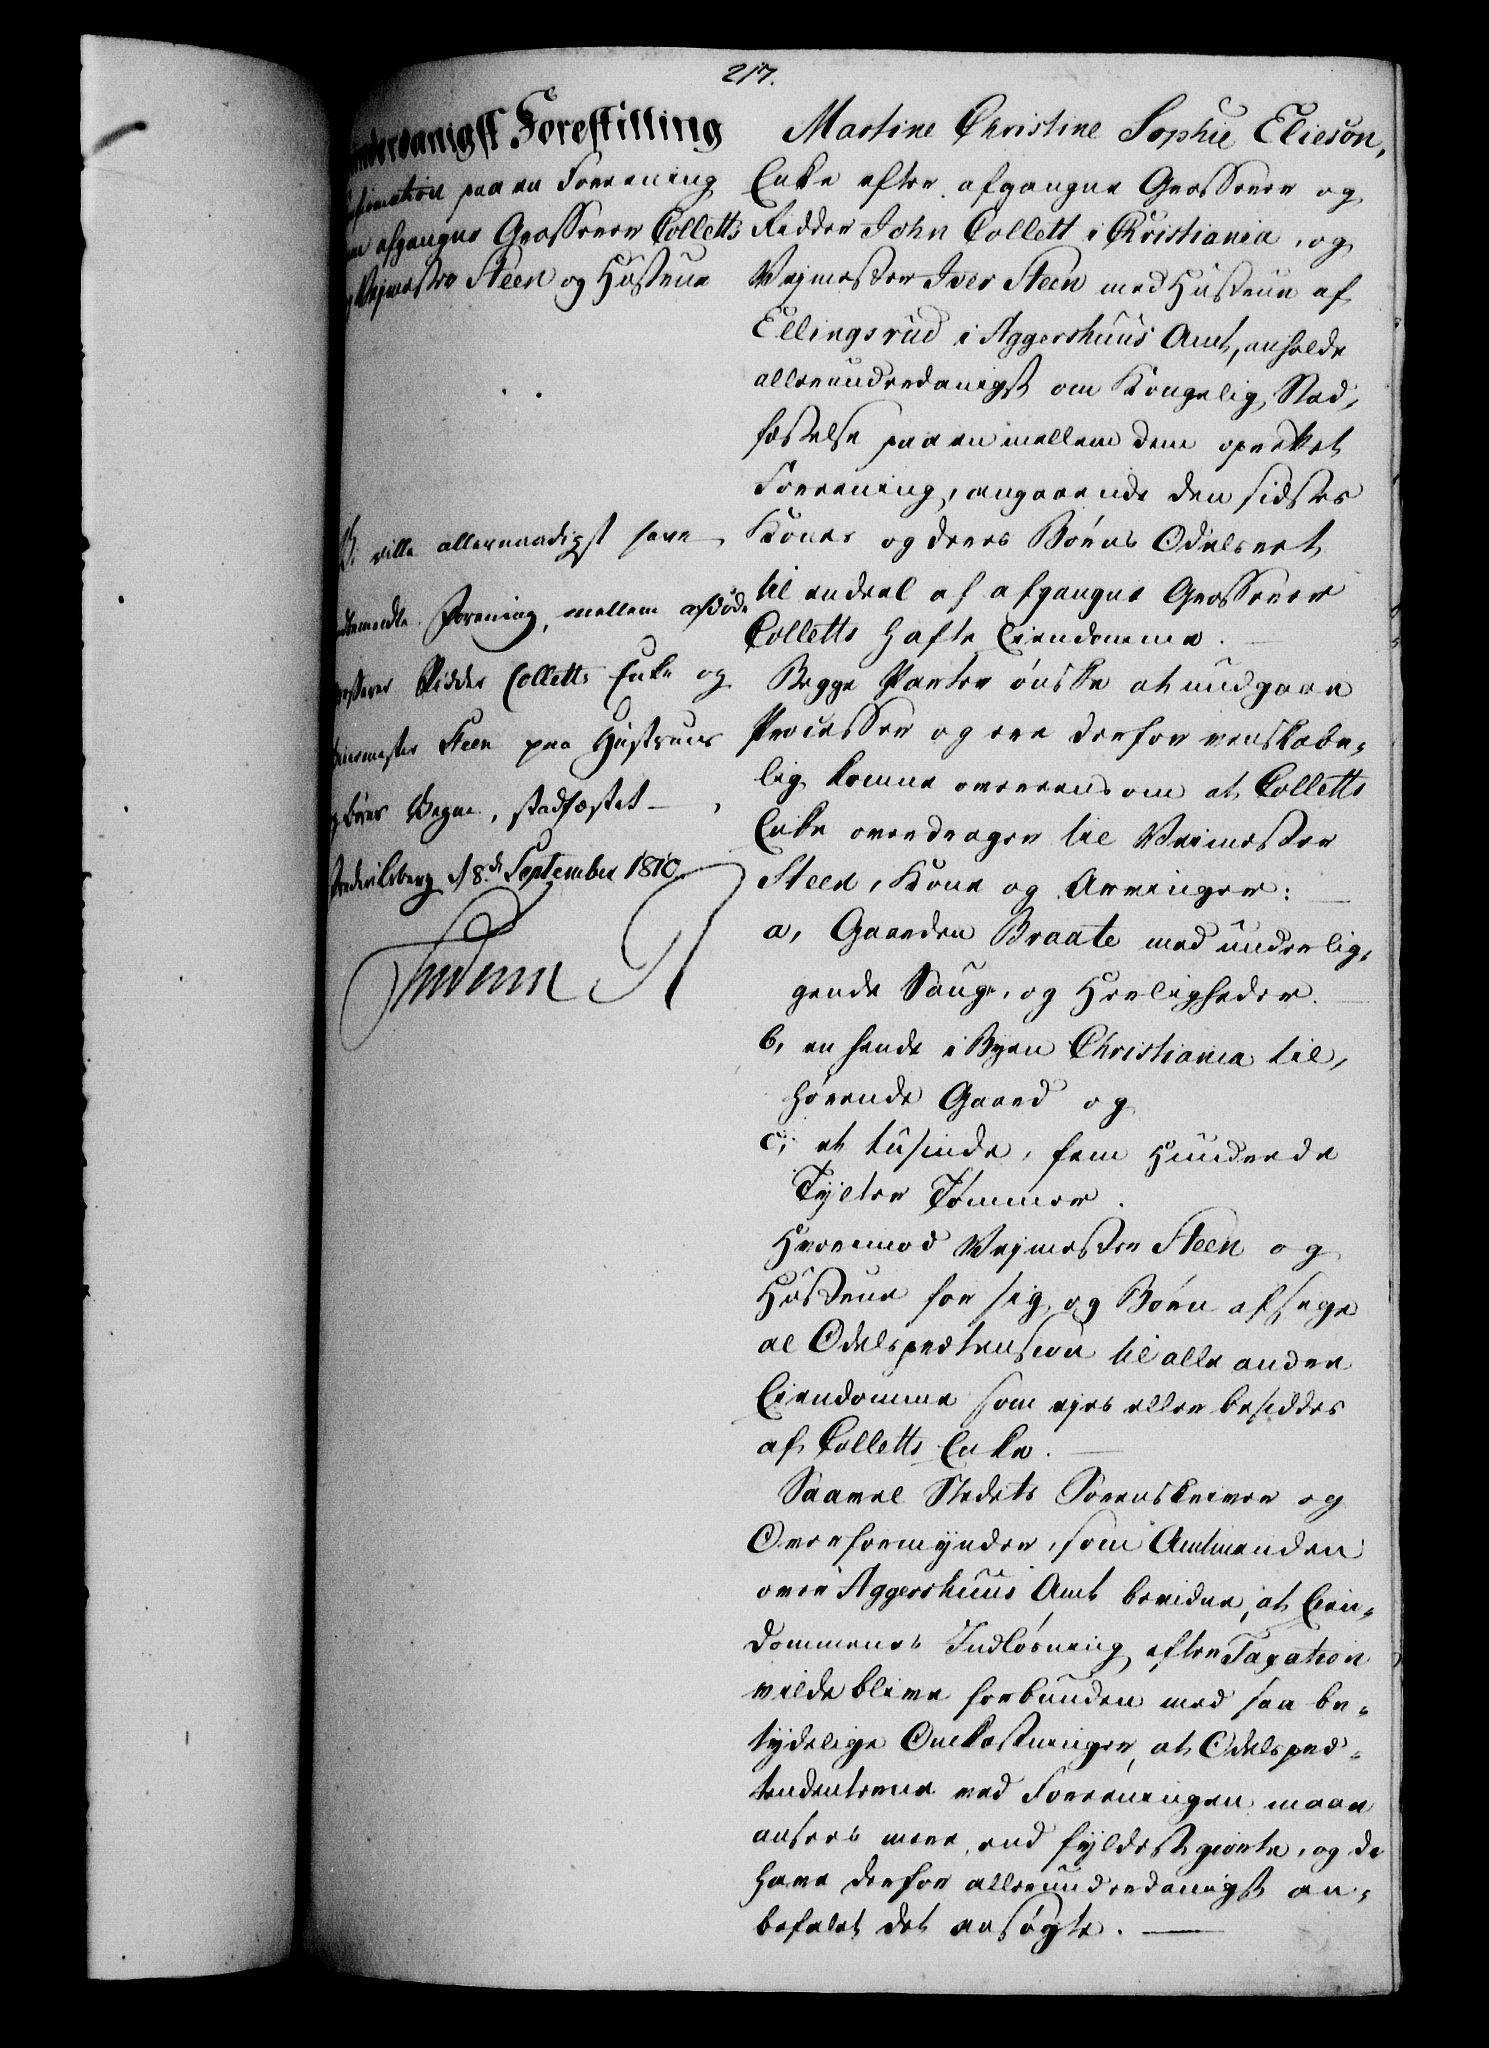 217.
underdanigst Forestilling
paa en Foreening
afgangne Grosserer Colletts
Vejmester Steen og Hustrue
ville allernaadigst have
Forening, mellem afdøde
Ridder Colletts Enke og
Steen paa Hustrues
Børns Vegne, stadfæstet
Frederiksberg d 8de September 1810.
Frederik R
Martine Christine Sophie Elieson,
Enke efter afgangne Grosserer og
Ridder John Collett i Christiania, og
Vejmester Iver Steen med Hustrue af
Ellingsrud i Aggershuus Amt, anholde
allerunderdanigst om Kongelig Stad-
fæstelse paa en mellem dem oprettet
Foreening, angaaende den sidstes
Kones og deres Børns Odelsret
til endeel af afgangne Grosserer
Colletts hafte Eiendomme.
Begge Parter ønske at undgaae
Processer og ere derfor venskabe-
lig komne overeens om at Colletts
Enke overdrager til Veimester
Steen, Kone og Arvinger:
a, Gaarden Braate med underlig-
gende Saug, og Herligheder.
b, en hende i Byen Christiania til-
hørende Gaard og
c, et tusinde, fem Hundrede
Tylter Tømmer.
Hvorimod Vejmester Steen og
Hustrue for sig og Børn afsige
al Odelsprætension til alle andre
Eiendomme som ejes eller besiddes
af Colletts Enke.
Saavel Stedets Sorenskriver og
Overformynder, som Amtmanden
over Aggershuus Amt bevidne, at Eien-
dommenes Indløsning efter Taxation
vilde blive forbunden med saa be-
tydelige Omkostninger, at Odelspræ-
tendenterne ved Foreeningen maae
ansees mere end fyldestgiorte, og de
have derfor allerunderdanigst an-
befalet det ansøgte.